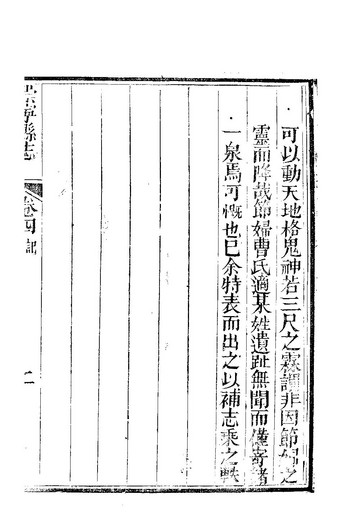 可以動天地格鬼神若三尺之霖謂非因節婦之
靈而降哉節婦曹氏適某姓遺趾無聞而僅寄諸
一泉焉可慨也已余特表而出之以補志乘之軼
寧縣志
卷四
記
二